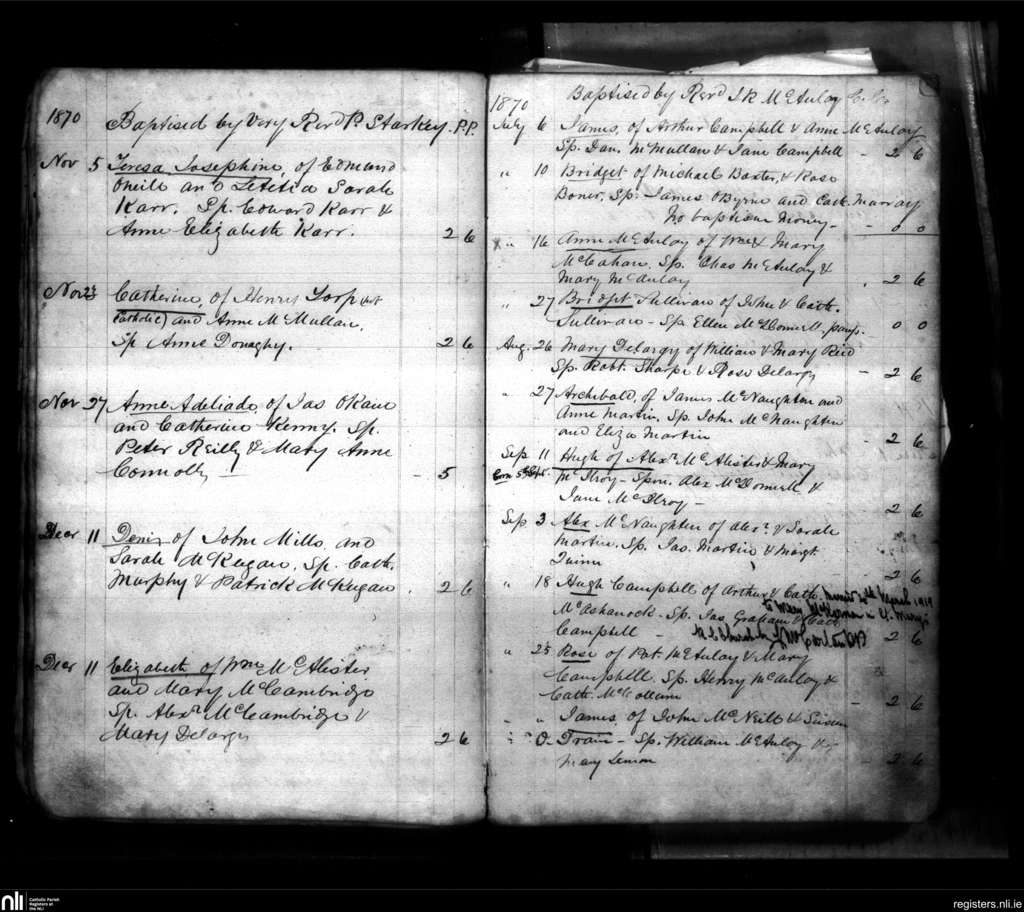 1870
Baptised by Very Revd P. Starkey. P.P.
Nov 5 Teresa Josephine, of Edmund
Oneill and Letetia Sarah
Karr. Sp. Edward Karr &
Anne Elizabeth Karr. 2 6
Nov Catherine, of Henry
Catholic) and Anne McMullan.
Sp Anne Donaghy. 2 6
Nov 27 Anne Adeliade of Jas OKane
and Catherine Kenny. Sp.
Peter Reilly & Mary Anne
Connolly - 5
Decr 11 Denis of John Mills and
Sarah McKegan, Sp. Cath.
Murphy & Patrick McKegan. 2 6
Decr 11 Elizabeth of Wm McAlister
and Mary McCambridge
Sp. Alexr McCambridge &
Mary Delargy 2 6
1870 Baptised by Revd McAulay
July 6 James, of Arthur Campbell & Anne McAulay
Sp. Dan. McMullan & Jane Campbell - 2 6
" 10 Bridget of Michael Baxter, & Rose
Boner. Sp. James OByrne and Cath. Murray
No baptism money - 0 0
X " 16 Anne McAulay of Wm & Mary
McCahan. Sp. Chas McAulay &
Mary McAulay 2 6
" 27 Bridget Sullivan of John & Cath.
Sullivan - Sp Ellen McDonnell. 0 0
Aug. 26 Mary Delargy of William & Mary Reid
Sp. Robt. Sharpe & Rose Delargy - 2 6
" 27 Archibald, of James McNaughten and
Anne Martin. Sp. John McNaughten
and Eliza Martin - 2 6
Sep 11 Hugh of Alexr McAlister & Mary
Born 5th Sept. McIlroy - Spon. Alex McDonnell &
Jane McIlroy - 2 6
Sep 3 Alex McNaughten of Alexr & Sarah
Martin. Sp. Jas. Martin & Margt
Quinn 2 6
" 18 Hugh Campbell of Arthur & Cath. 1919
Sp. Jas Graham & Cath
Campbell - 2 6
" 25 Rose of Pat McAulay & Mary
Campbell. Sp. Henry McAuley &
Cath. McCollum - 2 6
" " James of John McNeill & Susan
Sp. William McAuley
Mary Lemon - 2 6
nli
Catholic Parish
Registers at
the NLI
registers.nli.ie